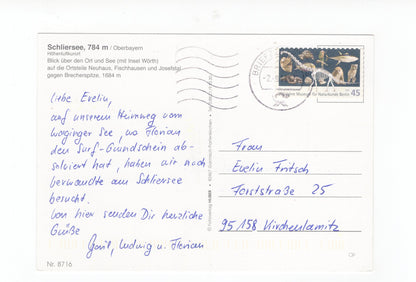 Schliersee, 784 m / Oberbayern
Höhenluftkurort
Blick über den Ort und See (mit Insel Wörth)
auf die Ortsteile Neuhaus, Fischhausen und Josefstal
gegen Brecherspitze, 1684 m
Liebe Evelin,
auf unserem Heimweg vom
Waginger See, wo Florian
den Surf-Grundschein ab-
solviert hat, haben wir noch
Verwandte am Schliersee
besucht.
Von hier senden Dir herzliche
Grüße
Gail, Ludwig u. Florian
Nr. 8716
BRIEF
Museum für Naturkunde Berlin
45
Frau
Evelin Fritsch
Forststraße 25
95158 Kirchenlamitz